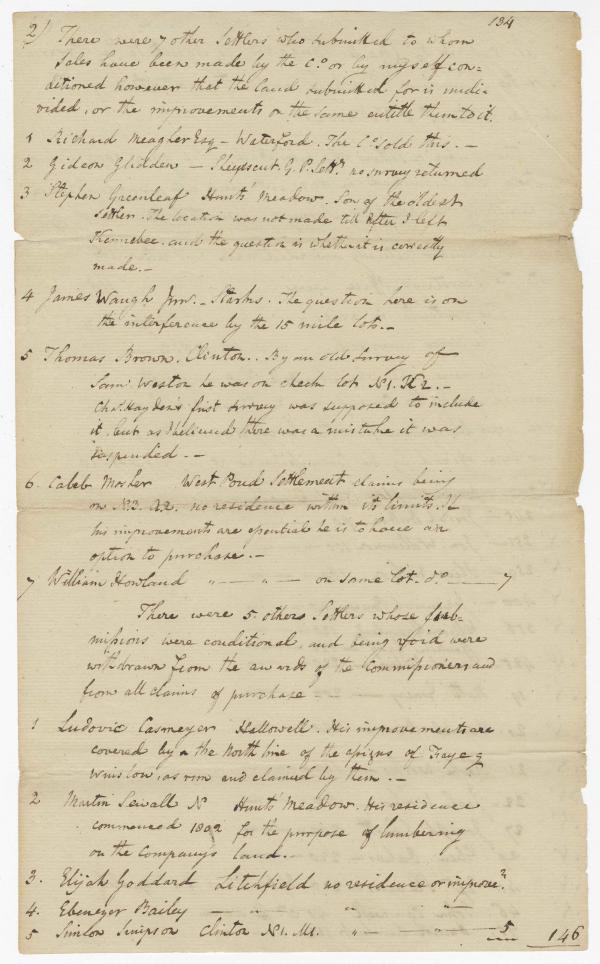 134
2/ There were 7 other Settlers who submitted to whom
Sales have been made by the Co. or by myself con-
ditioned however that the land submitted for is undi-
vided, or the improvements on the same entitle them to it.
1 Richard Meagher Esq - Waterford. The Co. sold this. -
2 Gideon Glidden - Sheepscut G. P. Settt. no survey returned
3 Stephen Greenleaf Hunts Meadow. Son of the oldest
Settler. The location was not made till after I left
Kennebec. and the question is whether it is correctly
made. -
4 James Waugh Junr. - Starks. The question here is on
the interference by the 15 mile lots. -
5 Thomas Brown. Clinton.. By an old survey of
Saml. Weston he was on check lot No 1. K2. -
Chas. Hayden's first survey was supposed to include
it, but as I believed there was a mistake it was
suspended. -
6. Caleb Mosher West Pond Settlement claims being
on N3. A2. no residence within its limits. If
his improvements are essential he is to have an
option to purchase. -
7 William Howland " — " — on same lot. do. — 7
There were 5 others Settlers whose sub-
missions were conditional, and being void were
withdrawn from the awards of the Commissioners and
from all claims of purchase -
1 Ludovic Casmeyer Hallowell. His improvements are
covered by the North line of the assigns of &
Winslow, as run and claimed by them. -
2 Martin Sewall N Hunts Meadow. His residence
commenced 1802 for the purpose of lumbering
on the Company's land. -
3. Elijah Goddard Litchfield no residence or improvet.
4. Ebenezer Bailey — " — " — " —
5 Simeon Simpson Clinton No 1. M1. " — " — 5 146